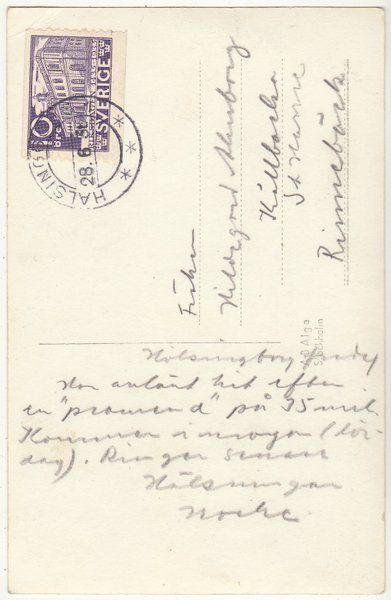 SVERIGE
HÄLSINGBORG
28.6.35
Fröken
Hildegard
Källbacka
St Harrie
Rinnebäck
A B Alga
Stockholm
Hälsingborg fredag
Har anlänt hit efter
en "promenad" på mil.
Kommer i morgon (lör-
dag). Ringer senare
Hälsningar